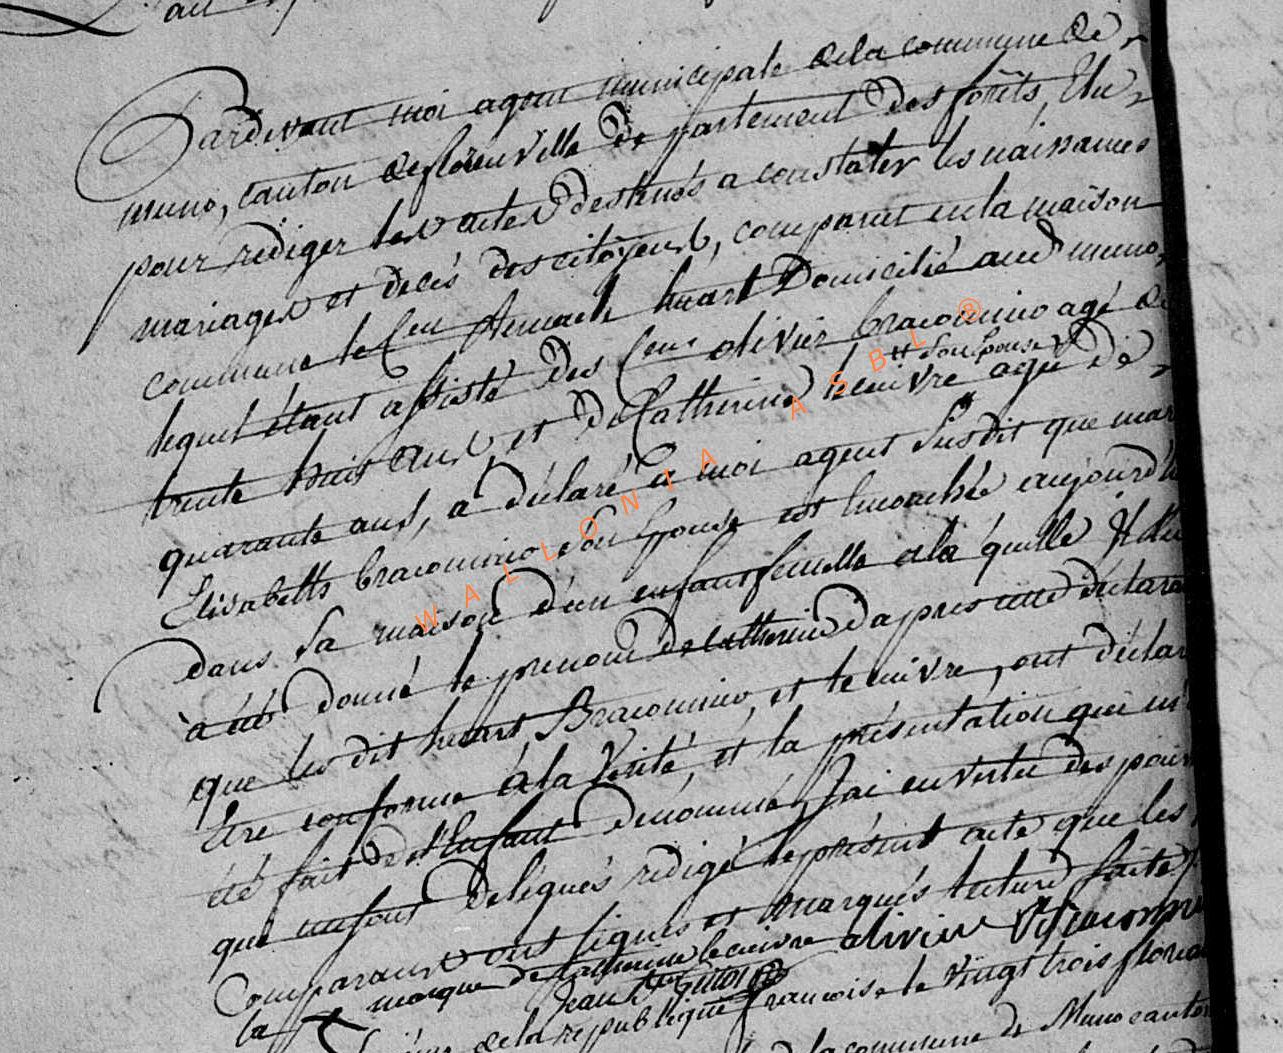 Pardevant moi agent municipale dela commune de
muno, canton de florenville departement des forêts, Elu
pour rediger les actes destinés a constater les naissances
mariages et decés des citoyens, comparut en la maison
commune le Cen huart Domicilié aud muno,
lequel étant assisté des Cens olivier braconnier agé de
trente huit ans, et de Catherine lecuivre agée de
tt son Epouse
quarante ans, a déclaré a moi agent susdit que
Elisabeth braconnier son Epouse est accouchée aujourd'
dans sa maison d'un enfant femelle ala quelle Il
a été donné le prenom de Catherine d'apres cette
que les dit huart Braconnier, et lecuivre, ont
Etre conforme a la Verité, et la présentation qui m'
été fait de l'Enfant denommé, J'ai en vertu des
qui me sont delegués redigé le présent acte que les
Comparans ont signés et marqués lecture faite
la marque de Catherine lecuivre olivier Braconnier
Jean
dela republique francoise le vingt trois
la commune de Muno canton
WALLONIA ASBL ®